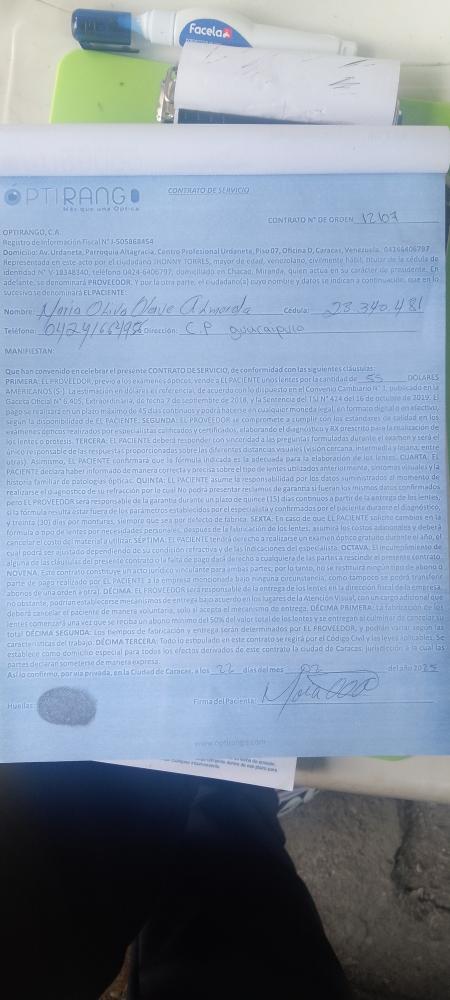 Facela
OPTIRANGO
Más que una Óptica
CONTRATO DE SERVICIO
CONTRATO N° DE ORDEN 12107
OPTIRANGO, C.A.
Registro de Información Fiscal N° J-505868454
Domicilio: Av. Urdaneta, Parroquia Altagracia, Centro Profesional Urdaneta, Piso 07, Oficina D, Caracas, Venezuela. 04266406797
Representada en este acto por el ciudadano JHONNY TORRES, mayor de edad, venezolano, civilmente hábil, titular de la cédula de
identidad N° V-18348340, teléfono 0424-6406797, domiciliado en Chacao, Miranda, quien actúa en su carácter de presidente. En
adelante, se denominará PROVEEDOR. Y por la otra parte, el ciudadano(a) cuyo nombre y datos se indican a continuación, que en lo
sucesivo se denominará EL PACIENTE:
Nombre: Maria Cédula: 23.340.481
Teléfono: Dirección: C.P guaicaipuro
MANIFIESTAN:
Que han convenido en celebrar el presente CONTRATO DE SERVICIO, de conformidad con las siguientes cláusulas:
PRIMERA: EL PROVEEDOR, previo a los exámenes ópticos, vende a EL PACIENTE unos lentes por la cantidad de 55 DÓLARES
AMERICANOS ($-). La estimación en dólares es referencial, de acuerdo con lo dispuesto en el Convenio Cambiario N° 1, publicado en la
Gaceta Oficial N° 6.405, Extraordinaria, de fecha 7 de septiembre de 2018, y la Sentencia del TSJ N° 424 del 16 de octubre de 2019. El
pago se realizará en un plazo máximo de 45 días continuos y podrá hacerse en cualquier moneda legal, en formato digital o en efectivo,
según la disponibilidad de EL PACIENTE. SEGUNDA: EL PROVEEDOR se compromete a cumplir con los estándares de calidad en los
exámenes ópticos realizados por especialistas calificados y certificados, elaborando el diagnóstico y RX prescrito para la realización de
los lentes o prótesis. TERCERA: EL PACIENTE deberá responder con sinceridad a las preguntas formuladas durante el examen y será el
único responsable de las respuestas proporcionadas sobre las diferentes distancias visuales (visión cercana, intermedia y lejana, entre
otras). Asimismo, EL PACIENTE confirmará que la fórmula indicada es la adecuada para la elaboración de los lentes. CUARTA: EL
PACIENTE declara haber informado de manera correcta y precisa sobre el tipo de lentes utilizados anteriormente, síntomas visuales y la
historia familiar de patologías ópticas. QUINTA: EL PACIENTE asume la responsabilidad por los datos suministrados al momento de
realizarse el diagnóstico de su refracción por lo cual No podrá presentar reclamos de garantía si fueron los mismos datos confirmados
pero EL PROVEEDOR será responsable de la garantía durante un plazo de quince (15) días continuos a partir de la entrega de los lentes,
si la fórmula resulta estar fuera de los parámetros establecidos por el especialista y confirmados por el paciente durante el diagnóstico,
y treinta (30) días por monturas, siempre que sea por defecto de fábrica. SEXTA: En caso de que EL PACIENTE solicite cambios en la
fórmula o tipo de lentes por necesidades personales, después de la fabricación de los lentes, asumirá los costos adicionales y deberá
cancelar el costo del material a utilizar. SÉPTIMA: EL PACIENTE tendrá derecho a realizarse un examen óptico gratuito durante el año, el
cual podrá ser ajustado dependiendo de su condición refractiva y de las indicaciones del especialista. OCTAVA: El incumplimiento de
alguna de las cláusulas del presente contrato o la falta de pago dará derecho a cualquiera de las partes a rescindir el presente contrato.
NOVENA: Este contrato constituye un acto jurídico vinculante para ambas partes; por lo tanto, no se restituirá ningún tipo de abono o
parte de pago realizado por EL PACIENTE a la empresa mencionada bajo ninguna circunstancia, como tampoco se podrá transferir
abonos de una orden a otra). DÉCIMA: EL PROVEEDOR será responsable de la entrega de los lentes en la dirección fiscal de la empresa,
no obstante, podrían establecerse mecanismos de entrega bajo acuerdo en los lugares de la Atención Visual, con un cargo adicional que
deberá cancelar el paciente de manera voluntaria, solo si acepta el mecanismo de entrega. DÉCIMA PRIMERA: La fabricación de los
lentes comenzará una vez que se reciba un abono mínimo del 50% del valor total de los lentes y se entregan al culminar de cancelar su
total DÉCIMA SEGUNDA: Los tiempos de fabricación y entrega serán determinados por EL PROVEEDOR, y podrían variar según las
características del trabajo. DÉCIMA TERCERA: Todo lo estipulado en este contrato se regirá por el Código Civil y las leyes aplicables. Se
establece como domicilio especial para todos los efectos derivados de este contrato la ciudad de Caracas, jurisdicción a la cual las
partes declaran someterse de manera expresa.
Así lo confirmo, por vía privada, en la Ciudad de Caracas, a los 22 días del mes 02 del año 2025
Huellas: Firma del Paciente:
www.optirango.com